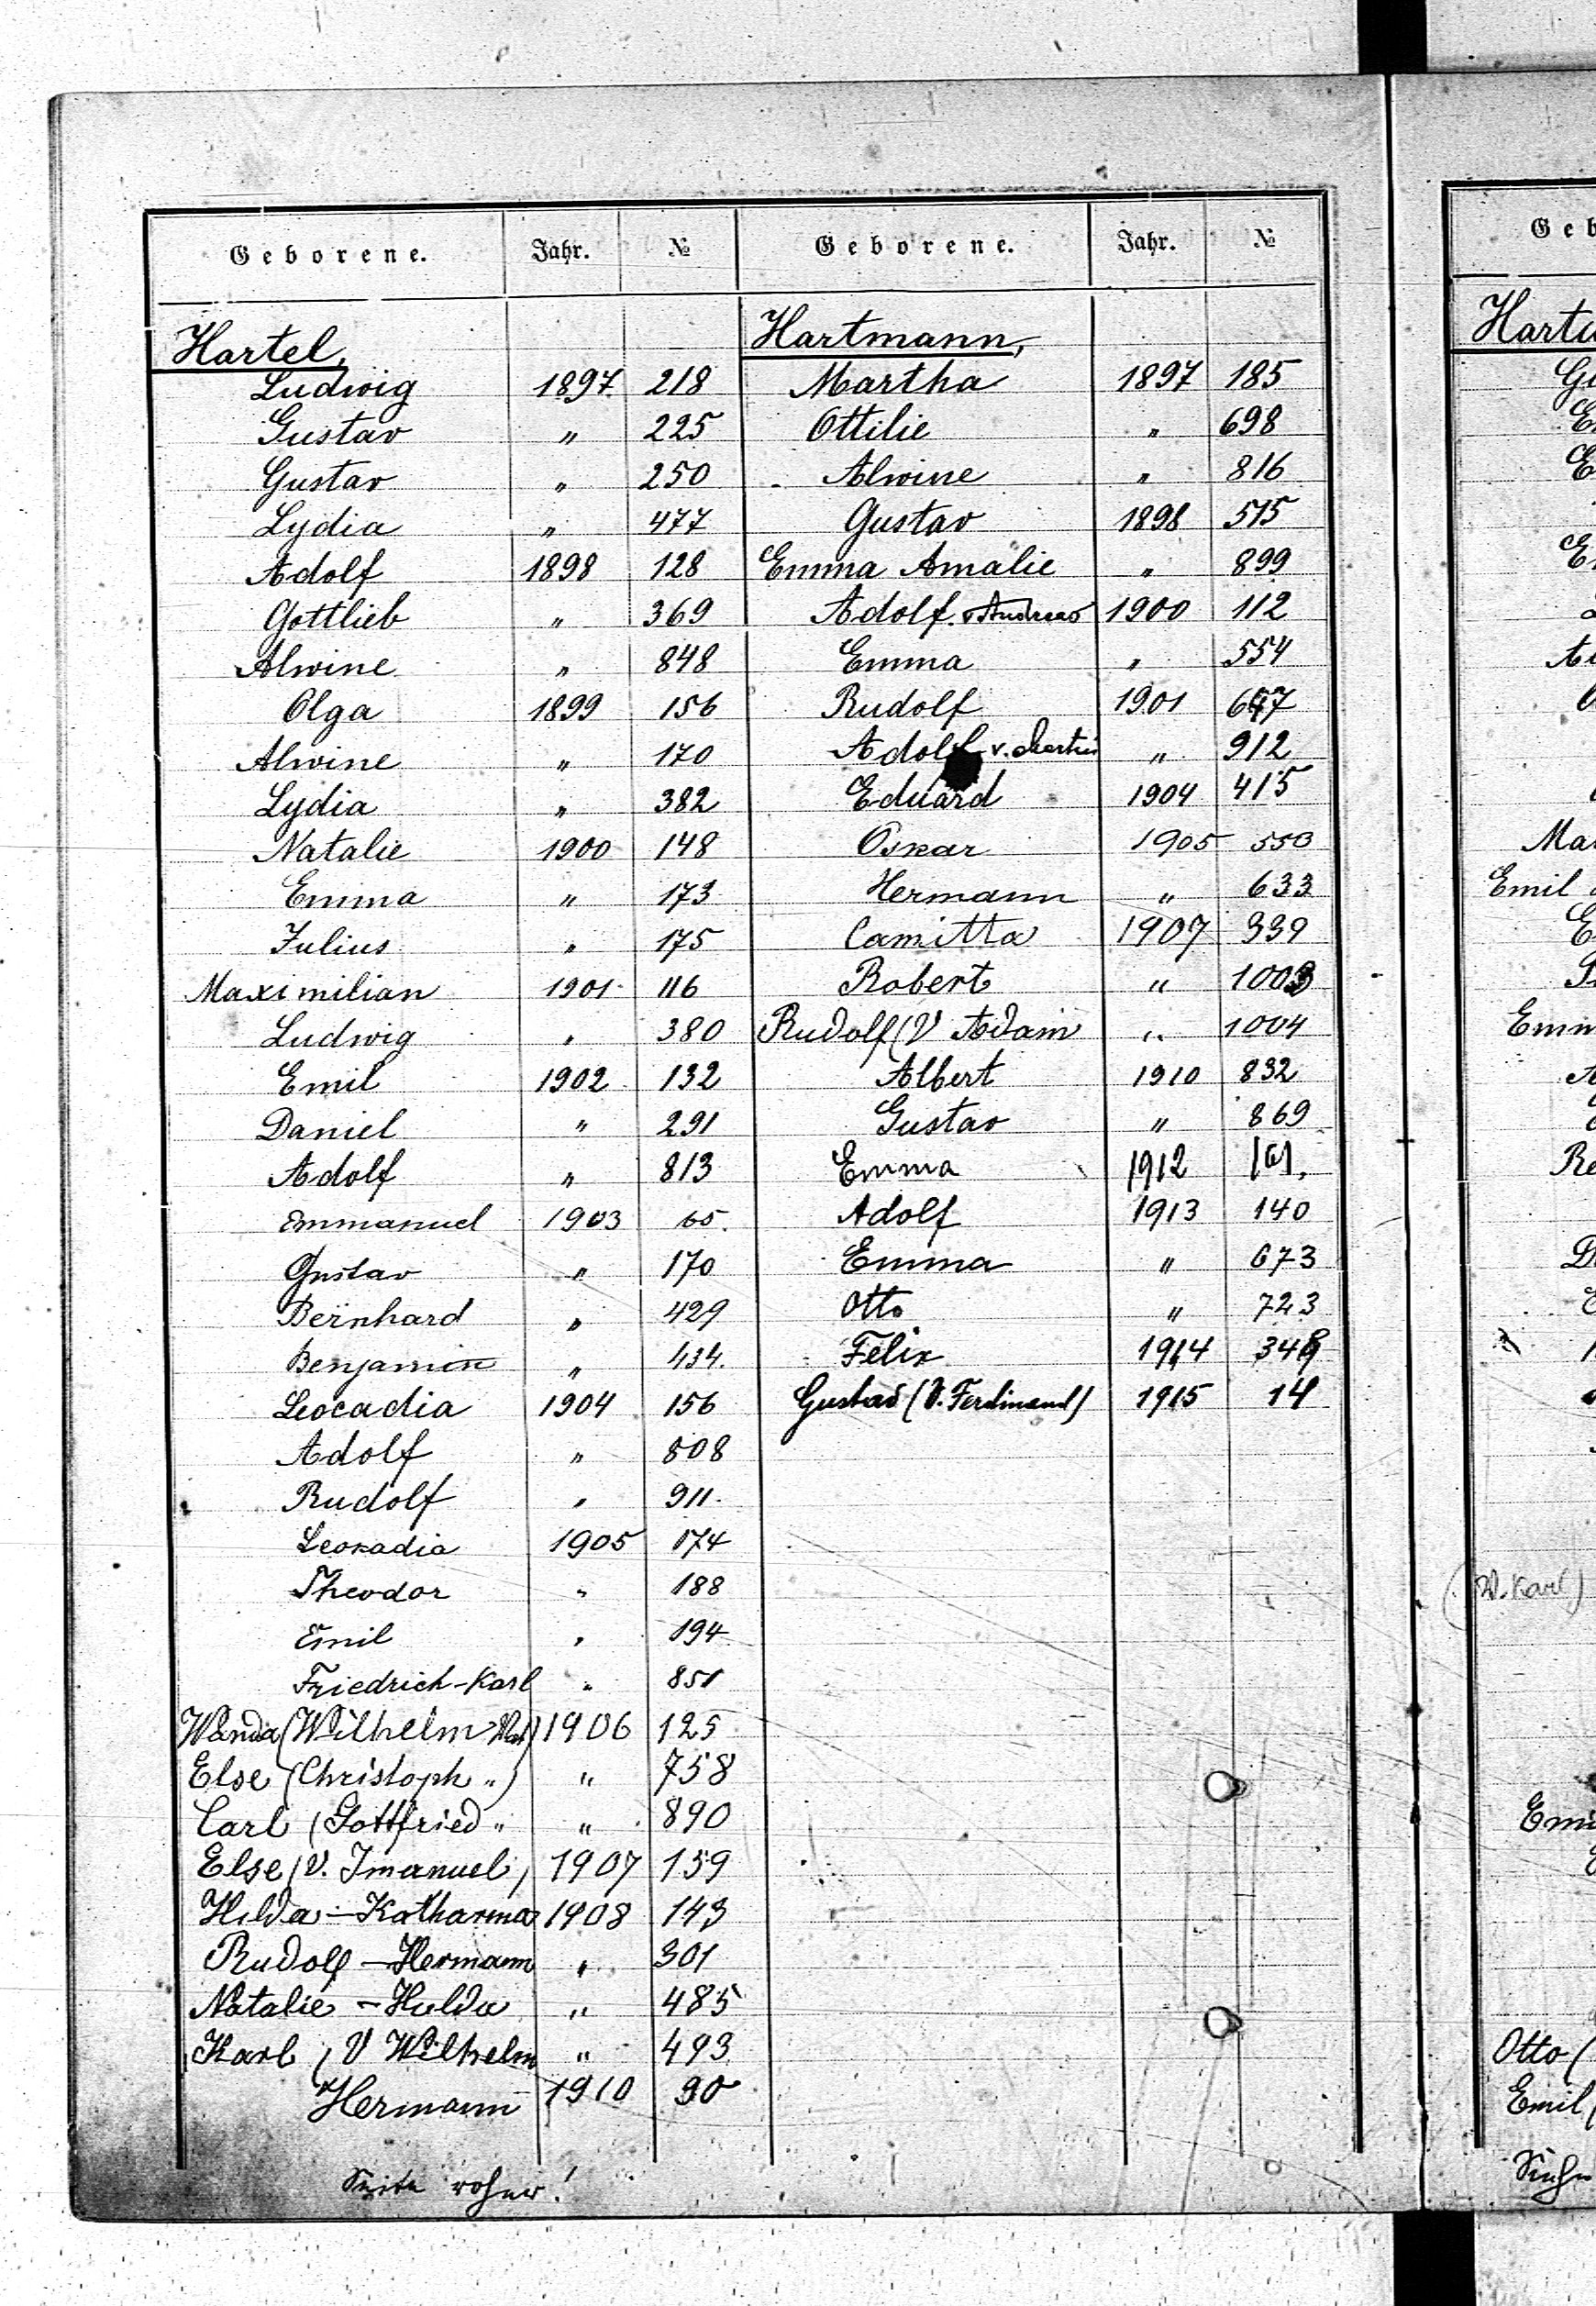 Geborene. Jahr. №
Hartel,
Ludwig 1897 218
Gustav " 225
Gustav " 250
Lydia " 477
Adolf 1898 128
Gottlieb " 369
Alwine " 848
Olga 1899 156
Alwine " 170
Lydia " 382
Natalie 1900 148
Emma " 173
Julius " 175
Maximilian 1901 116
Ludwig " 380
Emil 1902 132
Daniel " 291
Adolf " 813
Emmanuel 1903 65.
Gustav " 170
Bernhard " 429
Benjamin " 434.
Leocadia 1904 156
Adolf " 808
Rudolf " 911.
Leokadia 1905 174
Theodor " 188
Emil " 194
Friedrich-Karl " 851
Wanda (Wilhelm Vat) 1906 125
Else (Christoph ") " 758
Carl (Gottfried " " 890
Else (V. Imanuel) 1907 159
Hilda-Katharina 1908 143
Rudolf-Hermann " 301
Natalie-Hulda " 485
Karl (V Wilhelm " 493
Hermann 1910 90
Seite
Geborene. Jahr. №
Hartmann,
Martha 1897 185
Ottilie " 698
Alwine " 816
Gustav 1898 515
Emma Amalie " 899
Adolf. v Andreas 1900 112
Emma " 554
Rudolf 1901
Adolf v. Martin " 912
Eduard 1904 415
Oskar 1905 550
Hermann " 633
Camilla 1907 339
Robert " 1003
Rudolf (V Adam " 1004
Albert 1910 832
Gustav " 869
Emma 1912
Adolf 1913 140
Emma " 673
Otto " 723
Felix 1914 349
Gustav (V. Ferdinand) 1915 14
Geb
Hart
(V. Karl)
Otto (
Emil (